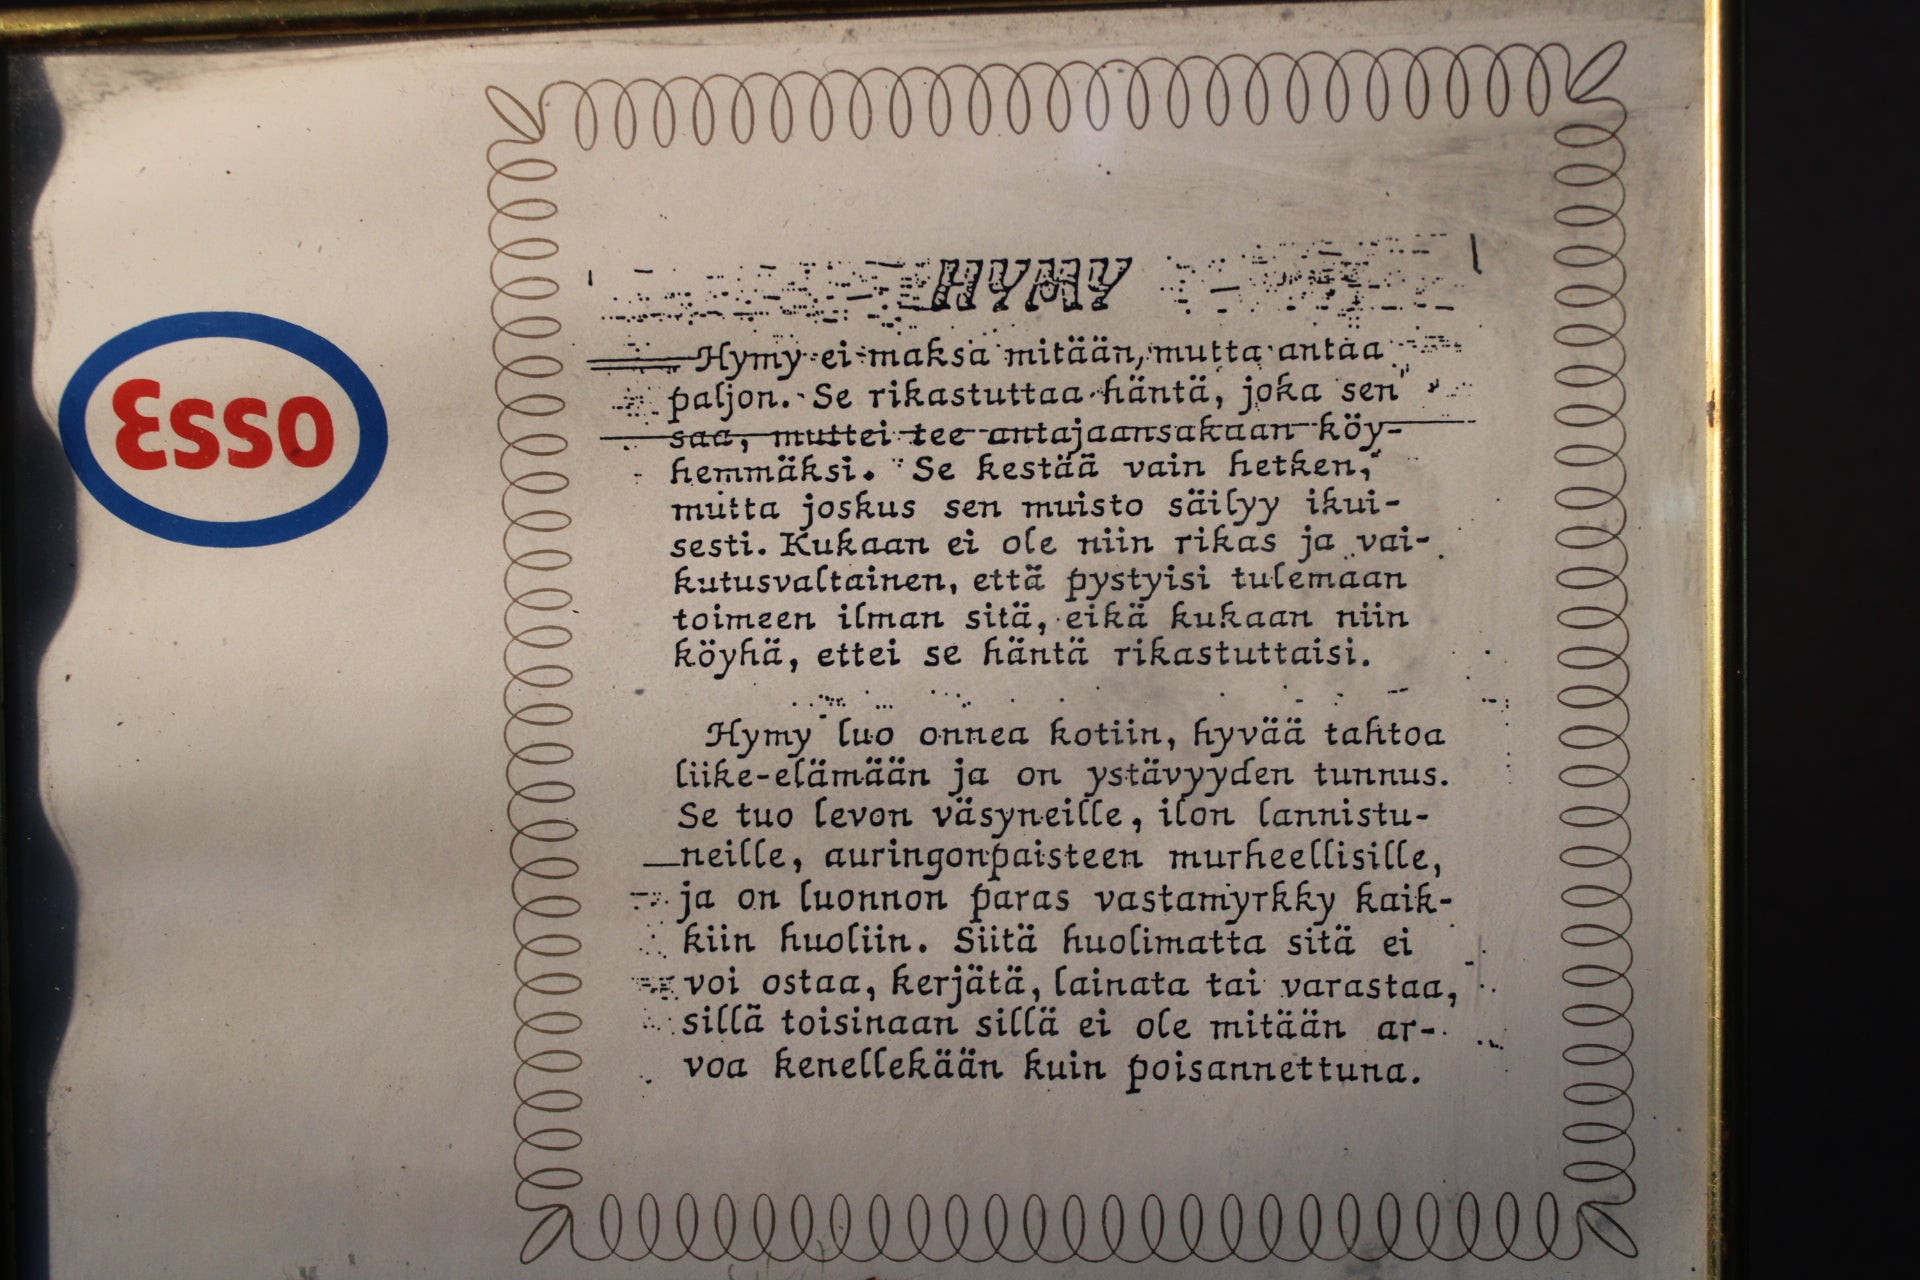 Esso
HYMY
Hymy ei maksa mitään, mutta antaa
paljon. Se rikastuttaa häntä, joka sen
saa, muttei tee antajaansakaan köy-
hemmäksi. Se kestää vain hetken,
mutta joskus sen muisto säilyy ikui-
sesti. Kukaan ei ole niin rikas ja vai-
kutusvaltainen, että pystyisi tulemaan
toimeen ilman sitä, eikä kukaan niin
köyhä, ettei se häntä rikastuttaisi.
Hymy luo onnea kotiin, hyvää tahtoa
liike-elämään ja on ystävyyden tunnus.
Se tuo levon väsyneille, ilon lannistu-
neille, auringonpaisteen murheellisille,
ja on luonnon paras vastamyrkky kaik-
kiin huoliin. Siitä huolimatta sitä ei
voi ostaa, kerjätä, lainata tai varastaa,
sillä toisinaan sillä ei ole mitään ar-
voa kenellekään kuin poisannettuna.